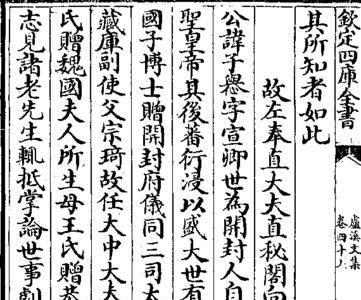 欽定四庫全書
盧溪文集
卷四十八
其所知者如此
故左奉直大夫直秘閣向
公諱子舉字宣卿世為開封人自
聖皇帝其後蕃衍浸以盛大世有
國子博士贈開封府儀同三司太
藏庫副使父宗琦故任大中大夫
氏贈魏國夫人所生母王氏贈恭
志見諸老先生輒抵掌論世事劇